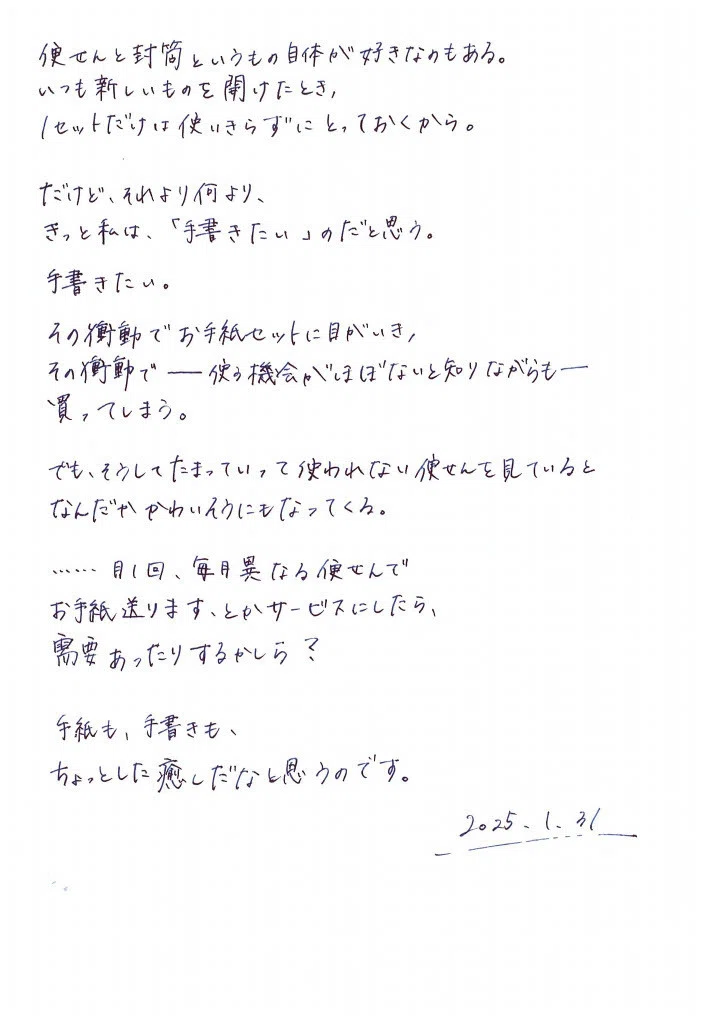 便せんと封筒というもの自体が好きなのもある。
いつも新しいものを開けたとき,
1セットだけは使いきらずにとっておくから。
だけど、それより何より、
きっと私は、「手書きたい」のだと思う。
手書きたい。
その衝動でお手紙セットに目がいき,
その衝動で ― 使う機会がほぼないと知りながらも ―
買ってしまう。
でも、そうしてたまっていって使われない便せんを見ていると
なんだかかわいそうにもなってくる。
…… 月1回、毎月異なる便せんで
お手紙送ります、とかサービスにしたら、
需要あったりするかしら?
手紙も, 手書きも、
ちょっとした癒しだなと思うのです。
2025.1.31